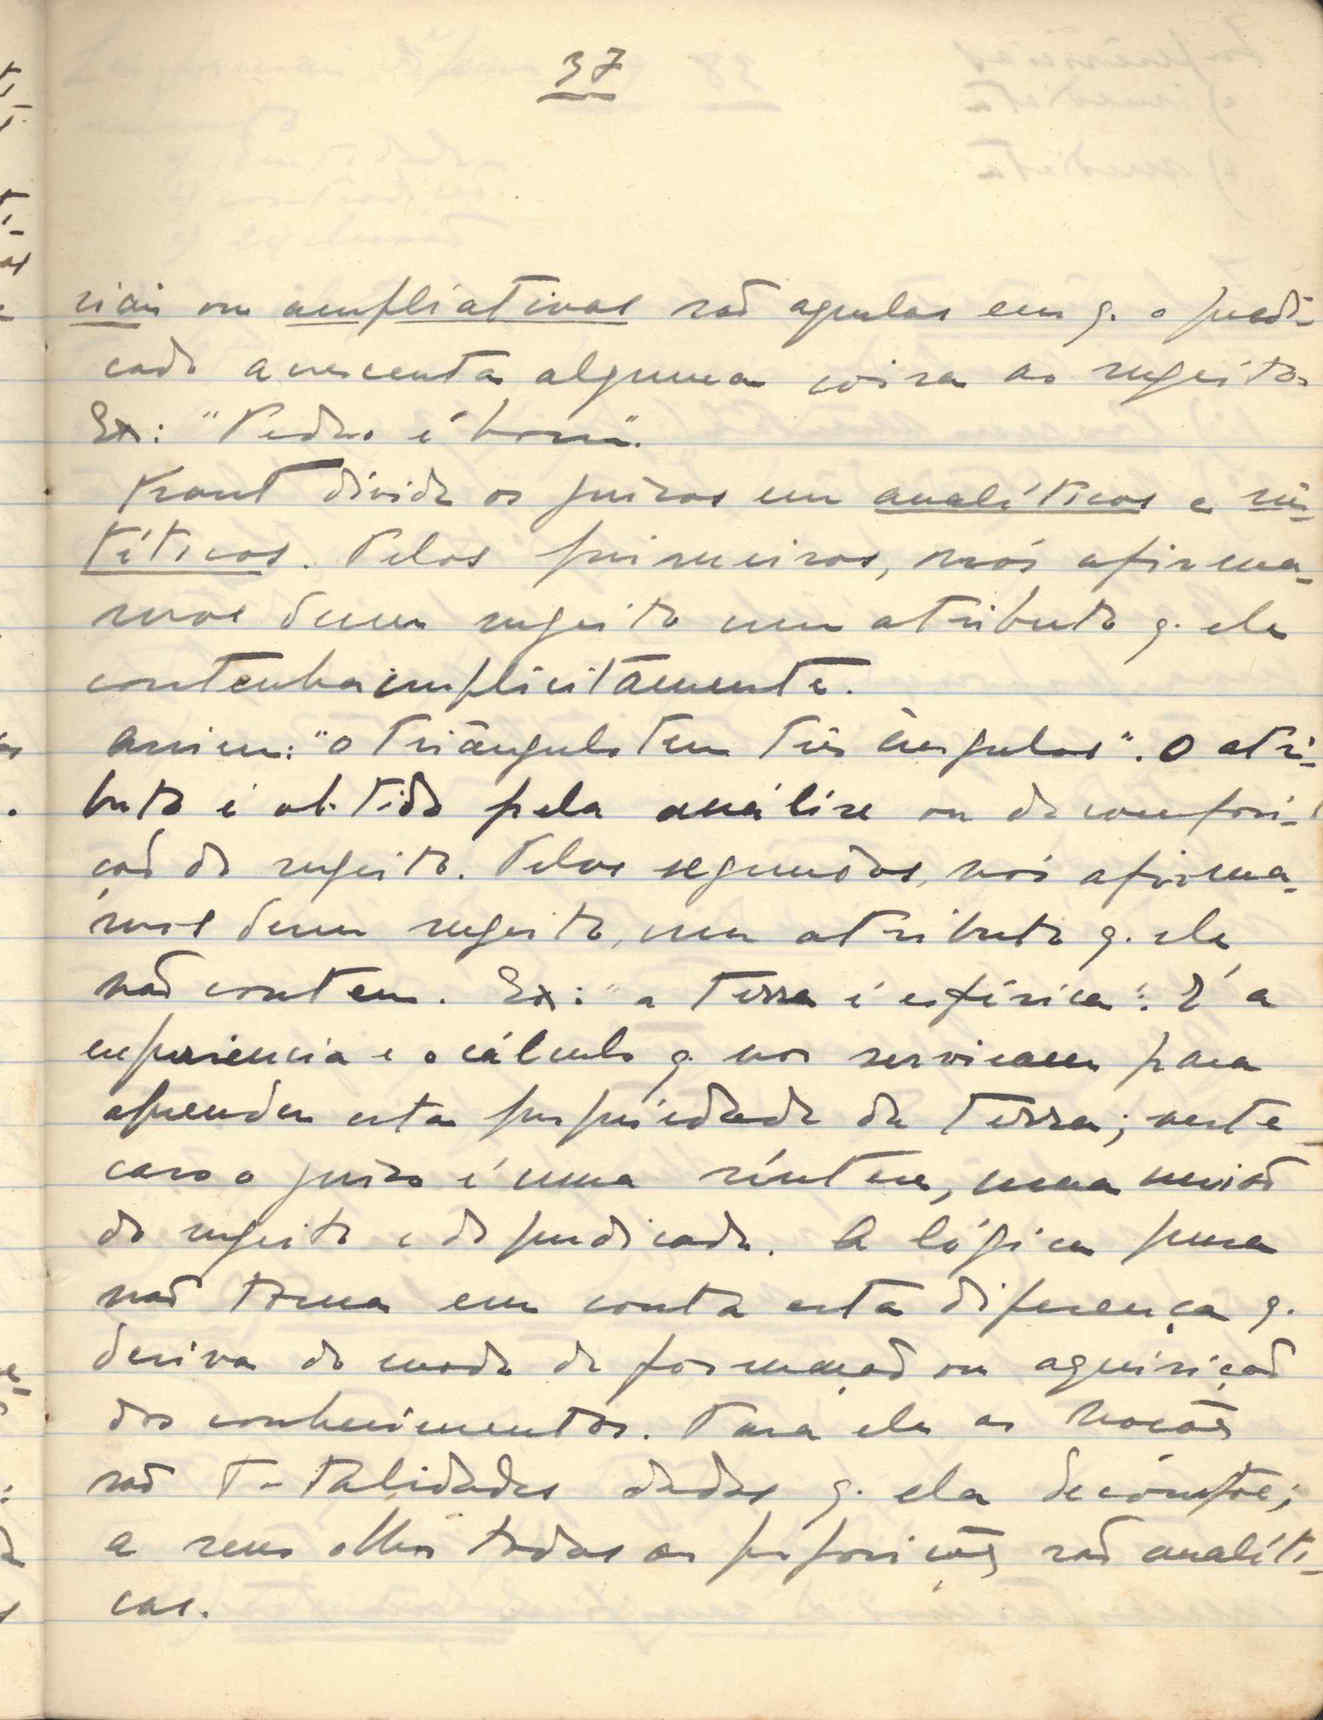 37
riais ou ampliativas são aquelas em q. o predi-
cado acrescenta alguma coisa ao sugeito.
Ex: "Pedro é bom".
Kant divide os juizos em analíticos e sin-
téticos. Pelos primeiros, nós afirma-
mos dum sugeito um atributo q. ele
contenha implicitamente.
Assim: "o triângulo tem três ângulos". O atri-
buto é obtido pela análise ou decomposi-
ção do sugeito. Pelos segundos, nós afirma-
mos dum sugeito, um atributo q. ele
não contem. Ex: "a Terra é esférica". É a
experiencia e o cálculo q nos serviram para
aprender esta propriedade da Terra; neste
caso o juizo é uma síntese, uma união
do sugeito e do predicado. A lógica pura
não toma em conta esta diferença q.
deriva do modo de formação ou aquisição
dos conhecimentos. Para ela as noções
são totalidades dadas q. ela decompõe;
a seus olhos todas as proposições são analíti-
cas.